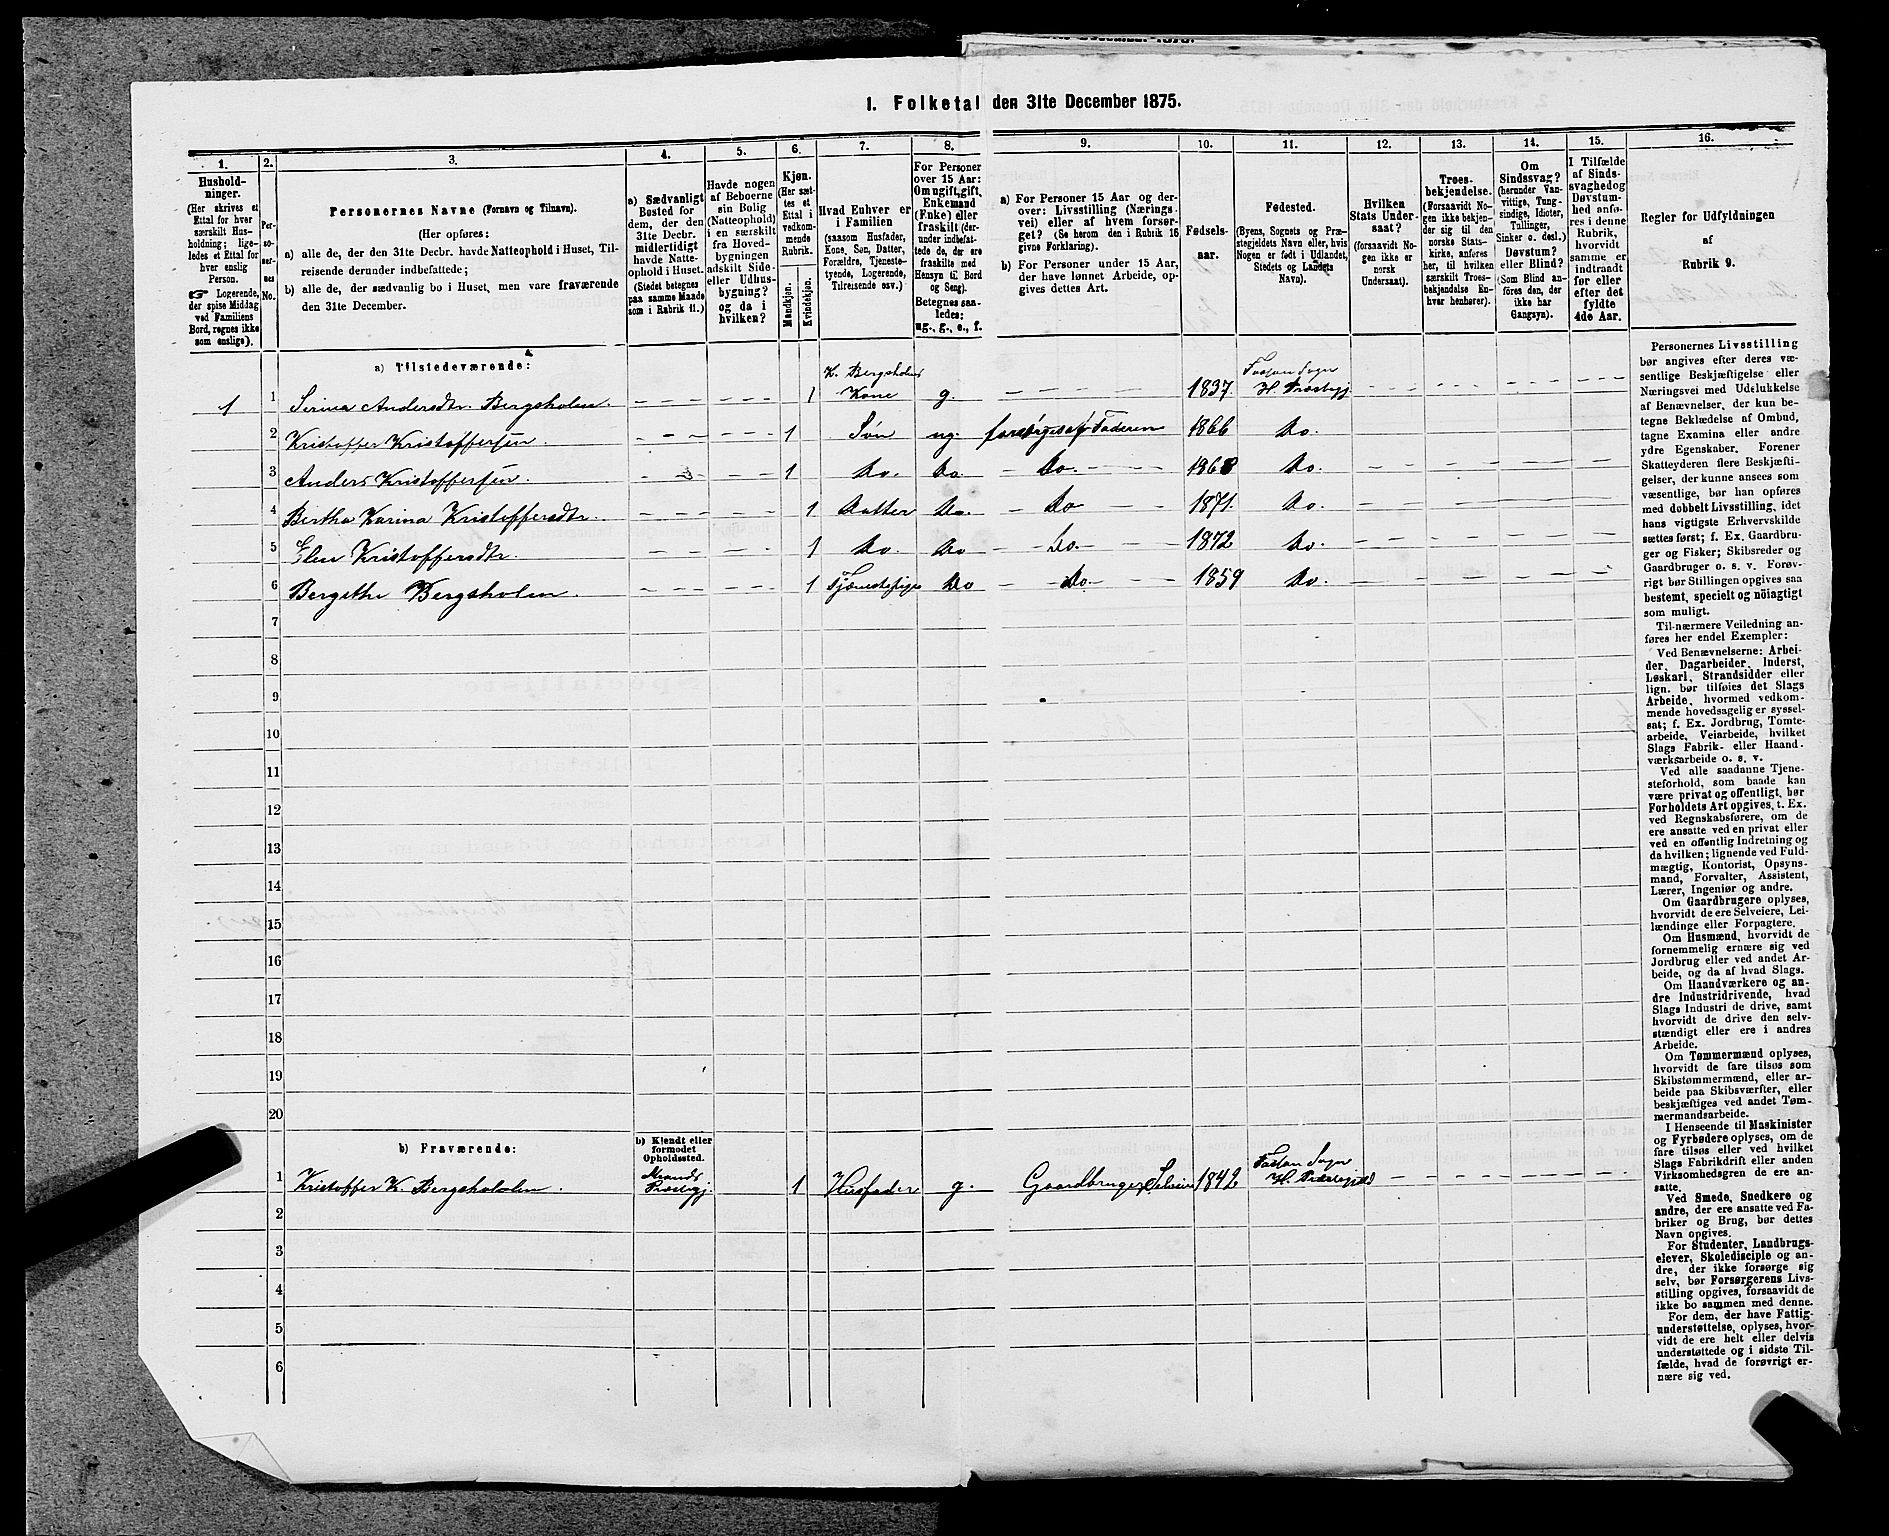 1. Folketal den 31te December 1875.
1. 2. 3. 4. 5. 6. 7. 8. 9. 10. 11. 12. 13. 14. 15. 16.
Hushold-
ninger.
(Her skrives et
Ettal for hver
særskilt Hus-
holdning; lige-
ledes et Ettal for
hver enslig
Person.
☞ Logerende,
der spise Middag
ved Familiens
Bord, regnes ikke
som enslige).
Per-
so-
ner-
nes
No.
Personernes Navne (Fornavn og Tilnavn).
(Her opføres:
a) alle de, der den 31te Decbr. havde Natteophold i Huset, Til-
reisende derunder indbefattede;
b) alle de, der sædvanlig bo i Huset, men vare fraværende
den 31te December.
a) Sædvanligt
Bosted for
dem, der den
31te Decbr.
midlertidigt
havde Natte-
ophold i Huset.
(Stedet betegnes
paa samme Maade
som i Rubrik 11.)
Havde nogen
af Beboerne
sin Bolig
(Natteophold)
i en særskilt
fra Hoved-
bygningen
adskilt Side-
eller Udhus-
bygning?
og da i
hvilken?
Kjøn.
(Her sæt-
tes et
Ettal i
vedkom-
mende
Rubrik.
Mandkjøn.
Kvindekjøn.
Hvad Enhver er
i Familien
(saasom Husfader,
Kone, Søn, Datter,
Forældre, Tjeneste-
tyende, Logerende,
Tilreisende osv.)
For Personer
over 15 Aar:
Om ugift, gift,
Enkemand
(Enke) eller
fraskilt (der-
under indbefat-
tede de, der ere
fraskilte med
Hensyn til Bord
og Seng).
Betegnes saa-
ledes:
ug., g., e., f.
a) For Personer 15 Aar og der-
over: Livsstilling (Nærings-
vei) eller af hvem forsør-
get? (Se herom den i Rubrik 16
givne Forklaring).
b) For Personer under 15 Aar,
der have lønnet Arbeide, op-
gives dettes Art.
Fødsels-
aar.
Fødested.
(Byens, Sognets og Præ-
stegjeldets Navn eller, hvis
Nogen er født i Udlandet,
Stedets og Landets
Navn).
Hvilken
Stats Under-
saat?
(forsaavidt No-
gen ikke er
norsk
Undersaat).
Troes-
bekjendelse.
(Forsaavidt No-
gen ikke bekjen-
der sig til den
norske Stats-
kirke, anføres
her, til hvilken
Troesbekjendelse En-
hver henhører).
Om
Sindssvag?
(herunder Van-
vittige, Tung-
sindige, Idioter,
Tullinger,
Sinker o. desl.)
Døvstum?
eller Blind?
(Som Blind an-
føres den, der
ikke har
Gangsyn).
I Tilfælde
af Sinds-
svaghed og
Døvstum-
hed anfø-
res i denne
Rubrik,
hvorvidt
samme er
indtraadt
før eller
efter det
fyldte
4de Aar.
Regler for Udfyldningen
af
Rubrik 9.
a) Tilstedeværende:
1 1 Serina Andersdtr. Bergsholm. 1 K. Bergsholms Kone g. 1837. Fosfan Sogn H. Præstegj
2 Kristoffer Kristoffersen. 1 Søn ug. forsørges af Faderen 1866 Do.
3 Anders Kristoffersen. 1 Do. Do Do. 1868 Do.
4 Bertha Karina Kristoffersdtr. 1 Datter Do. Do 1871. Do.
5 Elen Kristoffersdtr. 1 Do. Do Do. 1872 Do.
6 Bergithe Bergsholm. 1 Tjenestepige Do Do. 1859 Do.
7
8
9
10
11
12
13
14
15
16
17
18
19
20
b) Fraværende:
b) Kjendt eller
formodet
Opholdssted.
1 Kristoffer K. Bergsholmen Strands Præstegj 1 Husfader g. Gaardbruger Selveier 1842 Fosfan Sogn H. Præstegjæld
2
3
4
5
6
Personernes Livsstilling
bør angives efter deres væ-
sentlige Beskjæftigelse eller
Næringsvei med Udelukkelse
af Benævnelser, der kun be-
tegne Beklædelse af Ombud,
tagne Examina eller andre
ydre Egenskaber. Forener
Skatteyderen flere Beskjæfti-
gelser, der kunne ansees som
væsentlige, bør han opføres
med dobbelt Livsstilling, idet
hans vigtigste Erhvervskilde
sættes først; f. Ex. Gaardbru-
ger og Fisker; Skibsreder og
Gaardbruger o. s. v. Forøv-
rigt bør Stillingen opgives saa
bestemt, specielt og nöiagtigt
som muligt.
Til nærmere Veiledning an-
føres her endel Exempler:
Ved Benævnelserne: Arbei-
der, Dagarbeider, Inderst,
Løskarl, Strandsidder eller
lign. bør tilføies det Slags
Arbeide, hvormed vedkom-
mende hovedsagelig er syssel-
sat; f. Ex. Jordbrug, Tomte-
arbeide, Veiarbeide, hvilket
Slags Fabrik- eller Haand-
værksarbeide o. s. v.
Ved alle saadanne Tjene-
steforhold, som baade kan
være privat og offentligt, bør
Forholdets Art opgives, t. Ex.
ved Regnskabsførere, om de
ere ansatte ved en privat eller
ved en offentlig Indretning og
da hvilken; lignende ved Fuld-
mægtig, Kontorist, Opsyns-
mand, Forvalter, Assistent,
Lærer, Ingeniør og andre.
Om Gaardbrugere oplyses,
hvorvidt de ere Selveiere, Lei-
lændinge eller Forpagtere.
Om Husmænd, hvorvidt de
fornemmelig ernære sig ved
Jordbrug eller ved andet Ar-
beide, og da af hvad Slags.
Om Haandværkere og an-
dre Industridrivende, hvad
Slags Industri de drive, samt
hvorvidt de drive den selv-
stændigt eller ere i andres
Arbeide.
Om Tømmermænd oplyses,
hvorvidt de fare tilsøs som
Skibstømmermænd, eller ar-
beide paa Skibsværfter, eller
beskjæftiges ved andet Tøm-
mermandsarbeide.
I Henseende til Maskinister
og Fyrbødere oplyses, om de
fare tilsøs eller ved hvilket
Slags Fabrikdrift eller anden
Virksomhedsgren de ere an-
satte.
Ved Smede, Snedkere og
andre, der ere ansatte ved Fa-
briker og Brug, bør dettes
Navn opgives.
For Studenter, Landbrugs-
elever, Skoledisciple og an-
dre, der ikke forsørge sig
selv, bør Forsørgerens Livs-
stilling opgives, forsaavidt de
ikke bo sammen med denne.
For dem, der have Fattig-
understøttelse, oplyses, hvor-
vidt de ere helt eller delvis
understøttede og i sidste Til-
fælde, hvad de forøvrigt er-
nære sig ved.